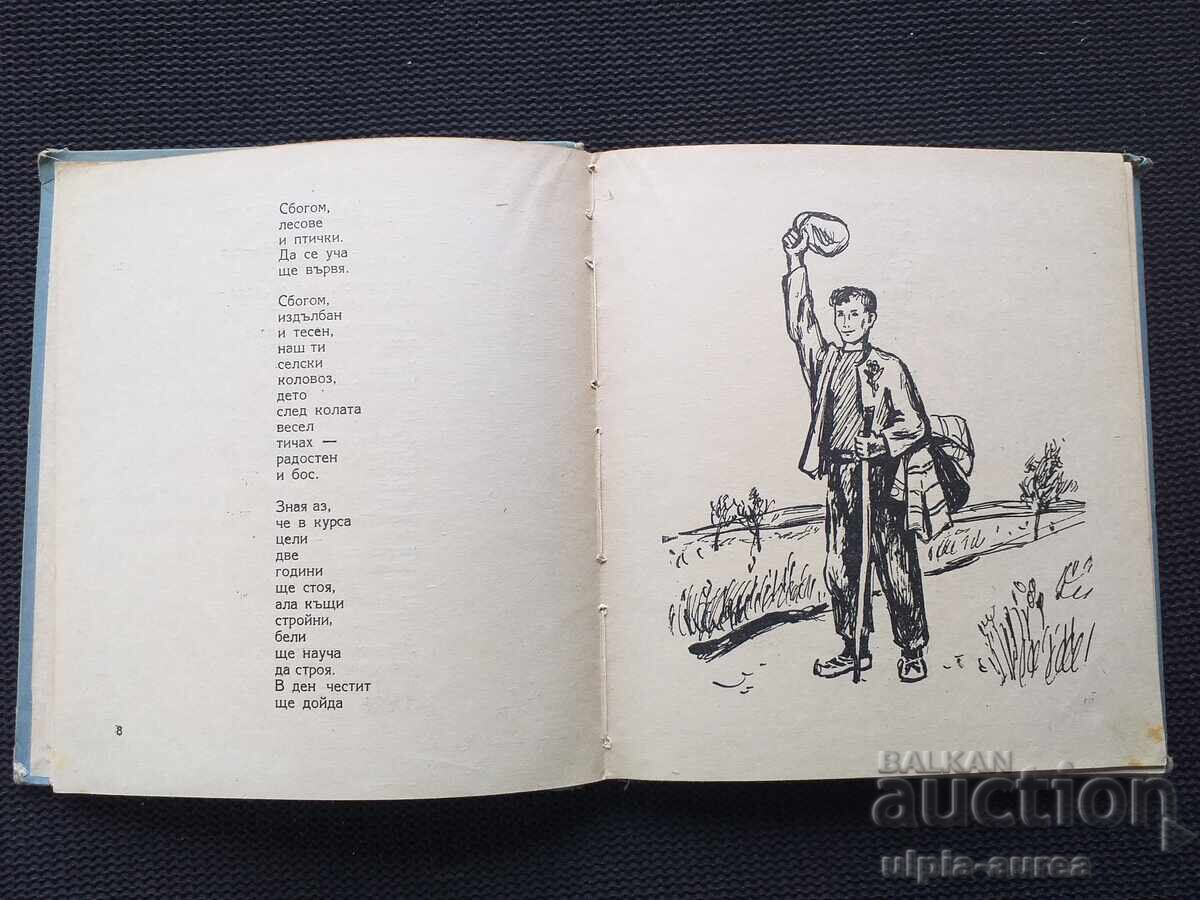 Сбогом,
лесове
и птички.
Да се уча
ще вървя.
Сбогом,
издълбан
и тесен,
наш ти
селски
коловоз,
дето
след колата
весел
тичах —
радостен
и бос.
Зная аз,
че в курса
цели
две
години
ще стоя,
ала къщи
стройни,
бели
ще науча
да строя.
В ден честит
ще дойда
8
BALKAN
auction
ulpia-aurea